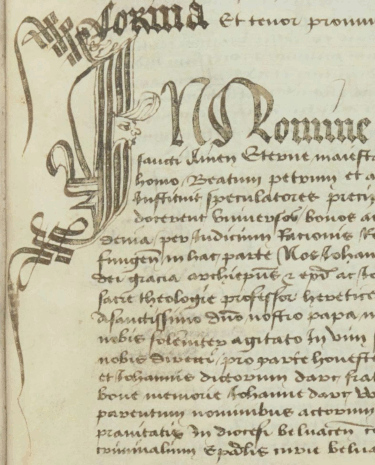 Forma Et tenor pronun
IN Nomine
sancti Amen Eterne maiesta
homo, Beatum petrum et a
Instituit speculatores preci
docerent vniuersos bonos a
denia, per Iudicium Racionis R
fungen in hac parte Nos Iohan
dei gracia archiepus et epus ac Io
sacre theologie professor heretice
A sanctissimo dno nostro papa n
nobis solemniter agitato In vim
nobis directi, pro parte honeste
et Iohannis dictorum darc frat
bone memorie Iohanne darc v
parentum nominibus actorum
prauitatis In diocesi beluacen
criminalium Epalis curie belua